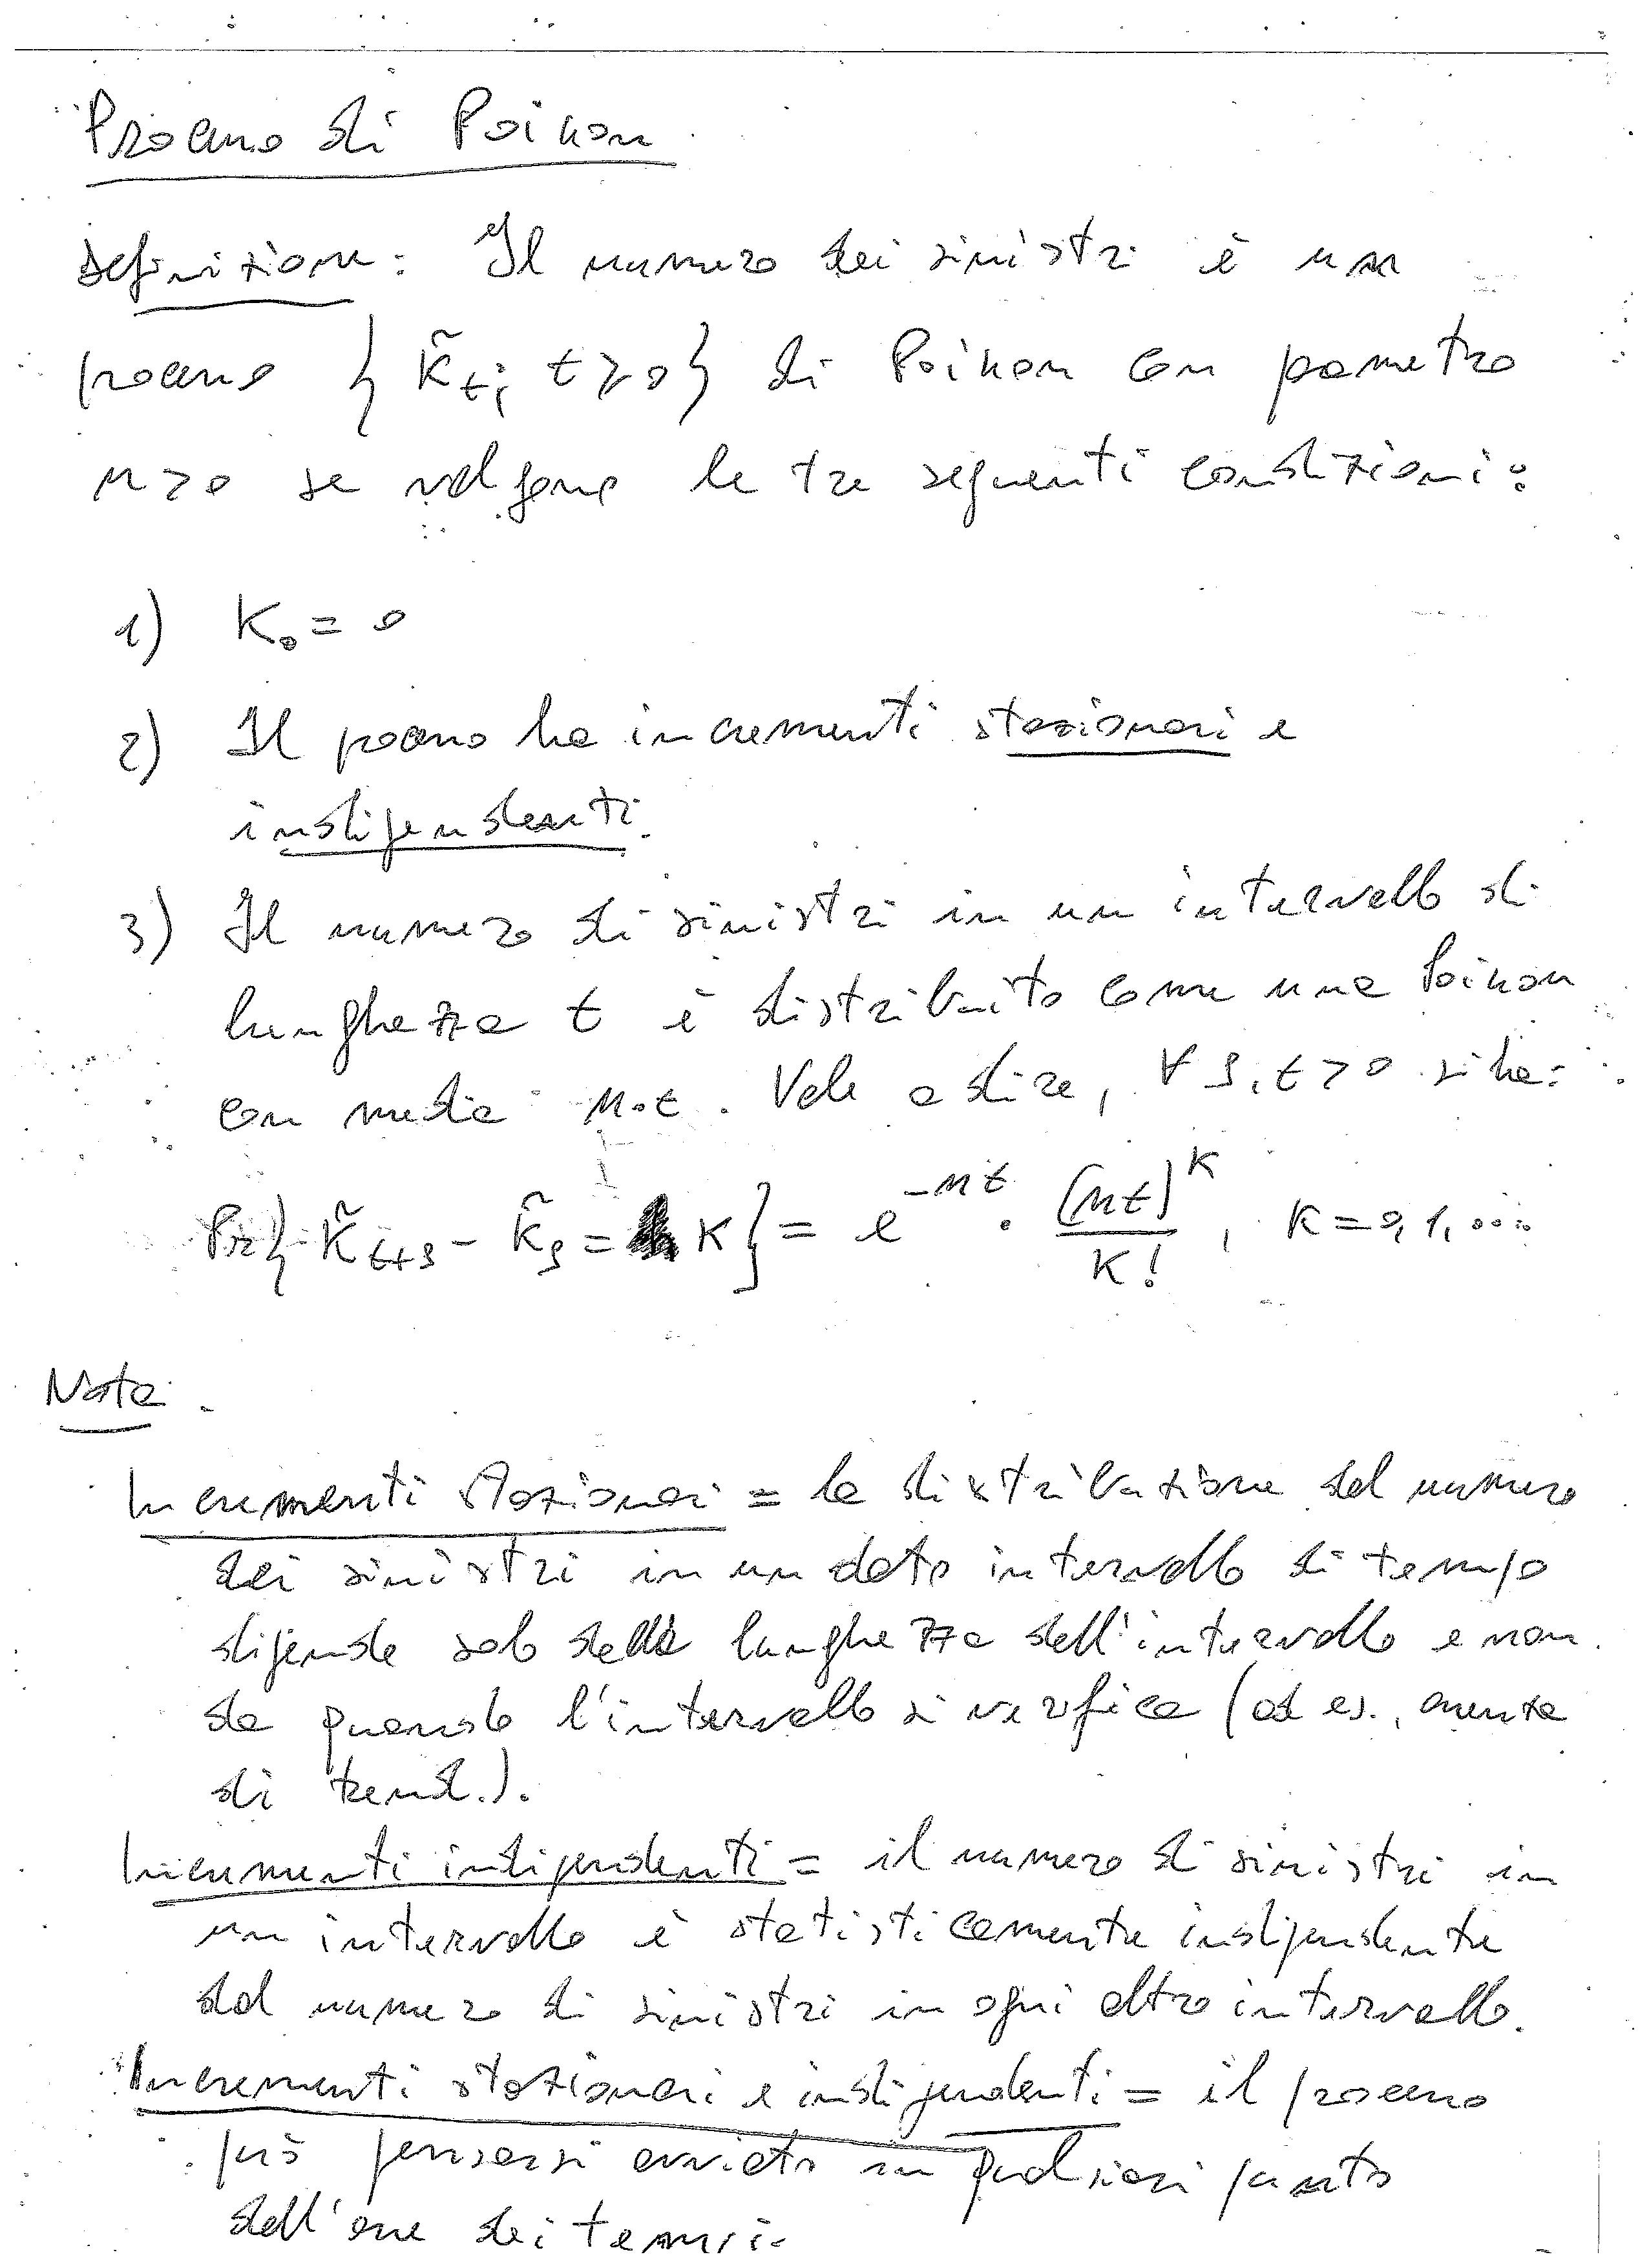 Processo di Poisson
Definizione: Il numero dei sinistri è un
processo { K̃t; t≥0} di Poisson con parametro
n>0 se valgono le tre seguenti condizioni:
1) K₀ = 0
2) Il processo ha incrementi stazionari e
indipendenti.
3) Il numero di sinistri in un intervallo di
lunghezza t è distribuito come una Poisson
con media n·t. Vale a dire, ∀ s,t>0 si ha:
Pr{ K̃t+s - K̃s = k } = e^-nt · (nt)^k / k! , k=0,1,....
Nota.
Incrementi stazionari = la distribuzione del numero
dei sinistri in un dato intervallo di tempo
dipende solo dalla lunghezza dell'intervallo e non
da quando l'intervallo si verifica (ad es., assenza
di trend.).
Incrementi indipendenti = il numero di sinistri in
un intervallo è statisticamente indipendente
dal numero di sinistri in ogni altro intervallo.
Incrementi stazionari e indipendenti = il processo
può pensarsi avviato in qualsiasi punto
dell'asse dei tempi.